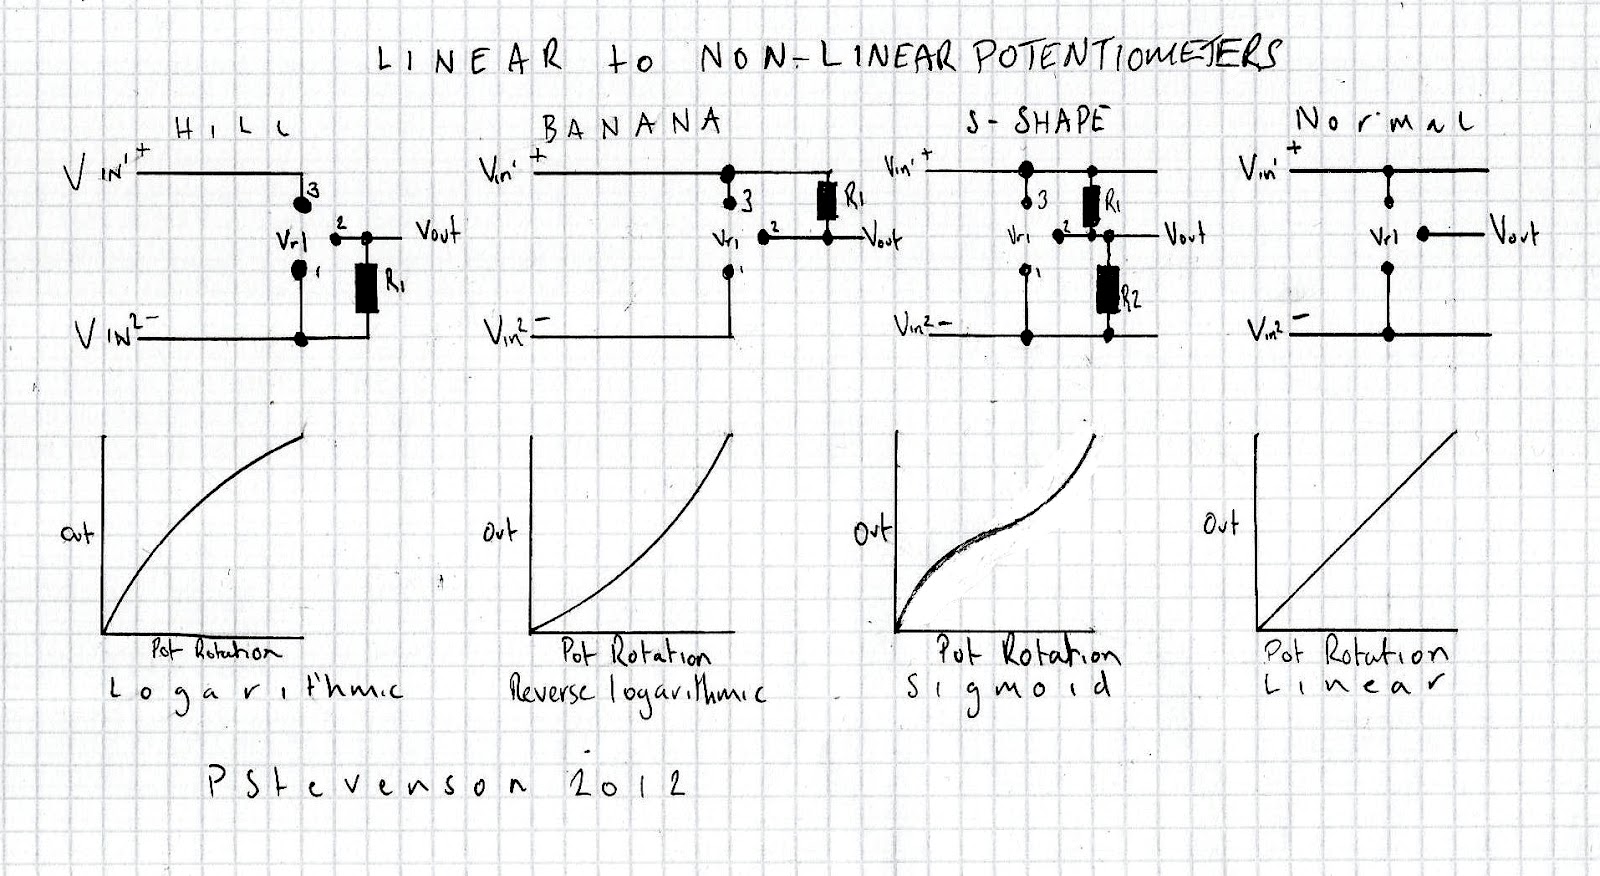 LINEAR to NON-LINEAR POTENTIOMETERS
HILL
VIN1+
3
2
Vr1
Vout
1
R1
VIN2-
Out
Pot Rotation
Logarithmic
BANANA
Vin1+
3
R1
Vr1
2
Vout
1
Vin2-
Out
Pot Rotation
Reverse logarithmic
S-SHAPE
Vin1+
3
R1
Vr1
2
Vout
1
R2
Vin2-
Out
Pot Rotation
Sigmoid
Normal
Vin1+
Vr1
Vout
Vin2-
Out
Pot Rotation
Linear
PStevenson 2012